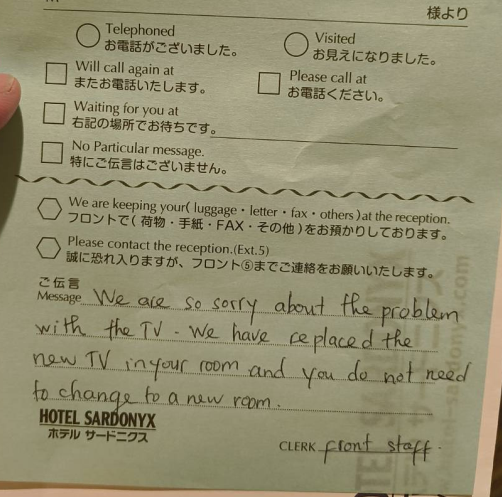 様より
Telephoned
お電話がございました。
Visited
お見えになりました。
Will call again at
またお電話いたします。
Please call at
お電話ください。
Waiting for you at
右記の場所でお待ちです。
No Particular message.
特にご伝言はございません。
We are keeping your( luggage・letter・fax・others )at the reception.
フロントで( 荷物・手紙・FAX・その他 )をお預かりしております。
Please contact the reception.(Ext.5)
誠に恐れ入りますが、フロント⑤までご連絡をお願いいたします。
ご伝言
Message We are so sorry about the problem
with the TV. We have replaced the
new TV in your room and you do not need
to change to a new room.
HOTEL SARDONYX
ホテル サードニクス
CLERK front staff.